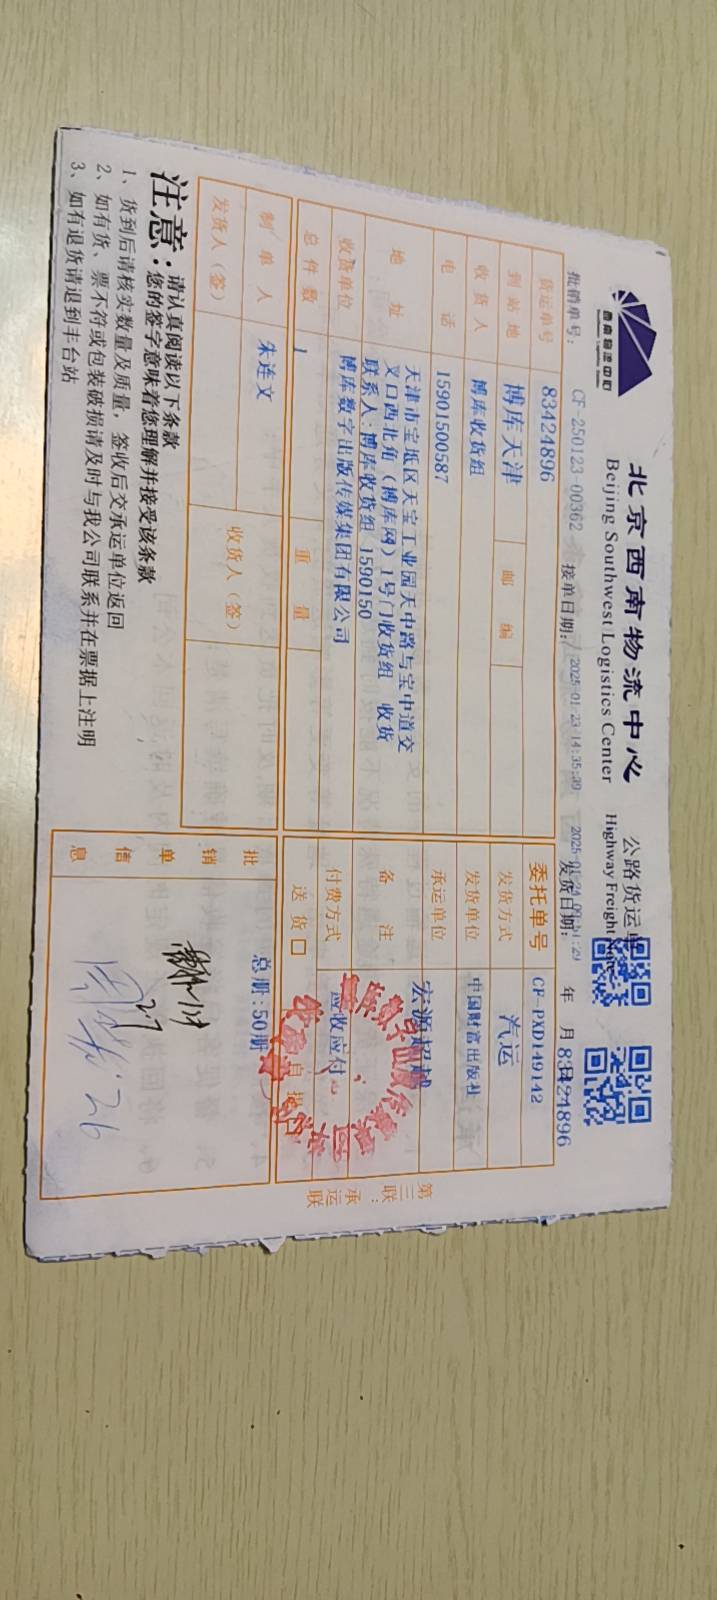 西南物流中心
北京西南物流中心 公路货运单
Beijing Southwest Logistics Center Highway Freight Note
批销单号: CF-250123-00362 接单日期: 2025-01-23 14:35:39 发货日期: 年 月
83424896
货运单号 83424896 委托单号 CF-PXD149142
到站地 博库天津 邮编 发货方式 汽运
收货人 博库收货组 发货单位 中国财富出版社
电话 15901500587 承运单位 宏源超越
地址 天津市宝坻区天宝工业园天中路与宝中道交
叉口西北角(博库网)1号门收货组 收货
联系人:博库收货组 1590150
备注
收货单位 博库数字出版传媒集团有限公司 付费方式 应收应付
总件数 1 重量 送货口 自提口
制单人 朱连文 收货人(签)
发货人(签)
批销单信息 总册:50册
27
26
注意:
请认真阅读以下条款
您的签字意味着您理解并接受该条款
1、货到后请核实数量及质量,签收后交承运单位返回
2、如有货、票不符或包装破损请及时与我公司联系并在票据上注明
3、如有退货请退到丰台站
第三联:承运联